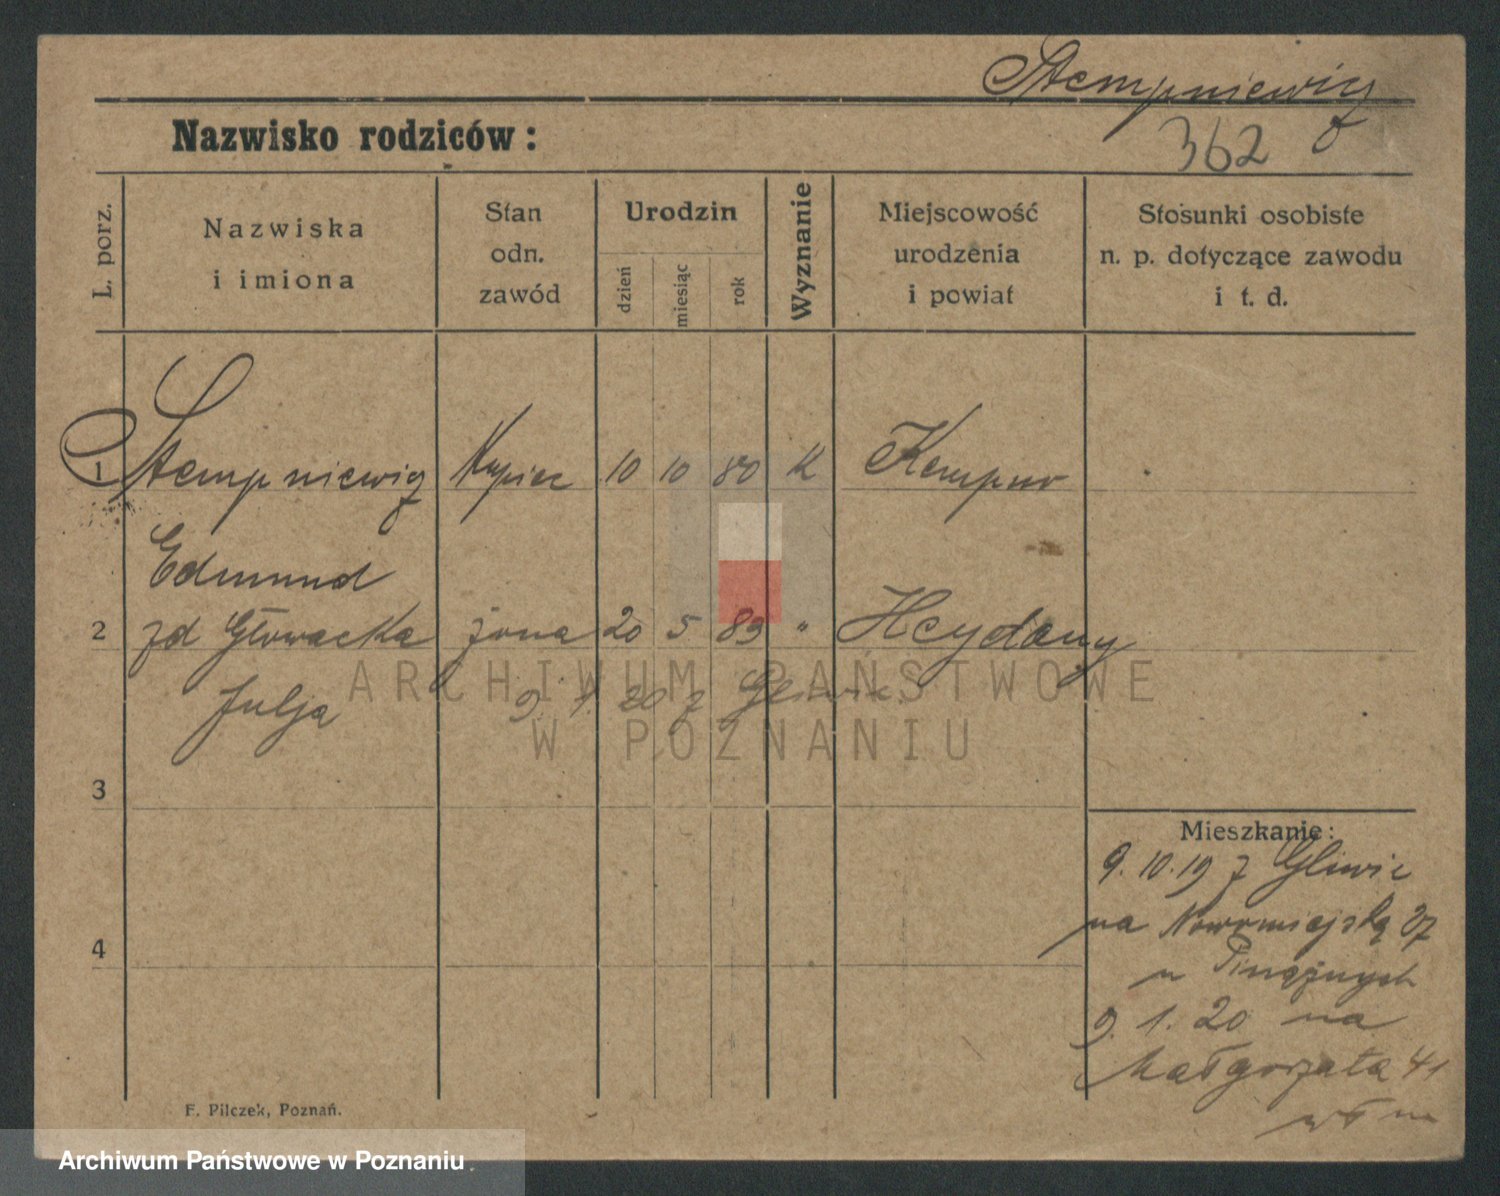 Stempniewicz
Nazwisko rodziców:
362
L. porz.
Nazwiska
i imiona
Stan
odn.
zawód
Urodzin
dzień
miesiąc
rok
Wyznanie
Miejscowość
urodzenia
i powiat
Stosunki osobiste
n. p. dotyczące zawodu
i t. d.
1 Stempniewicz Kupiec 10 10 80 K Kempno
Edmund
2 zd Głowacka żona 20 5 89 " Heydany
Julja 9. 1. 20 z Gliwic
3
4
Mieszkanie:
9. 10. 19 z Gliwic
na Nowomiejską 27
u
9. 1. 20 na
Małgorzata 41
F. Pilczek, Poznań.
ARCHIWUM PAŃSTWOWE
W POZNANIU
Archiwum Państwowe w Poznaniu